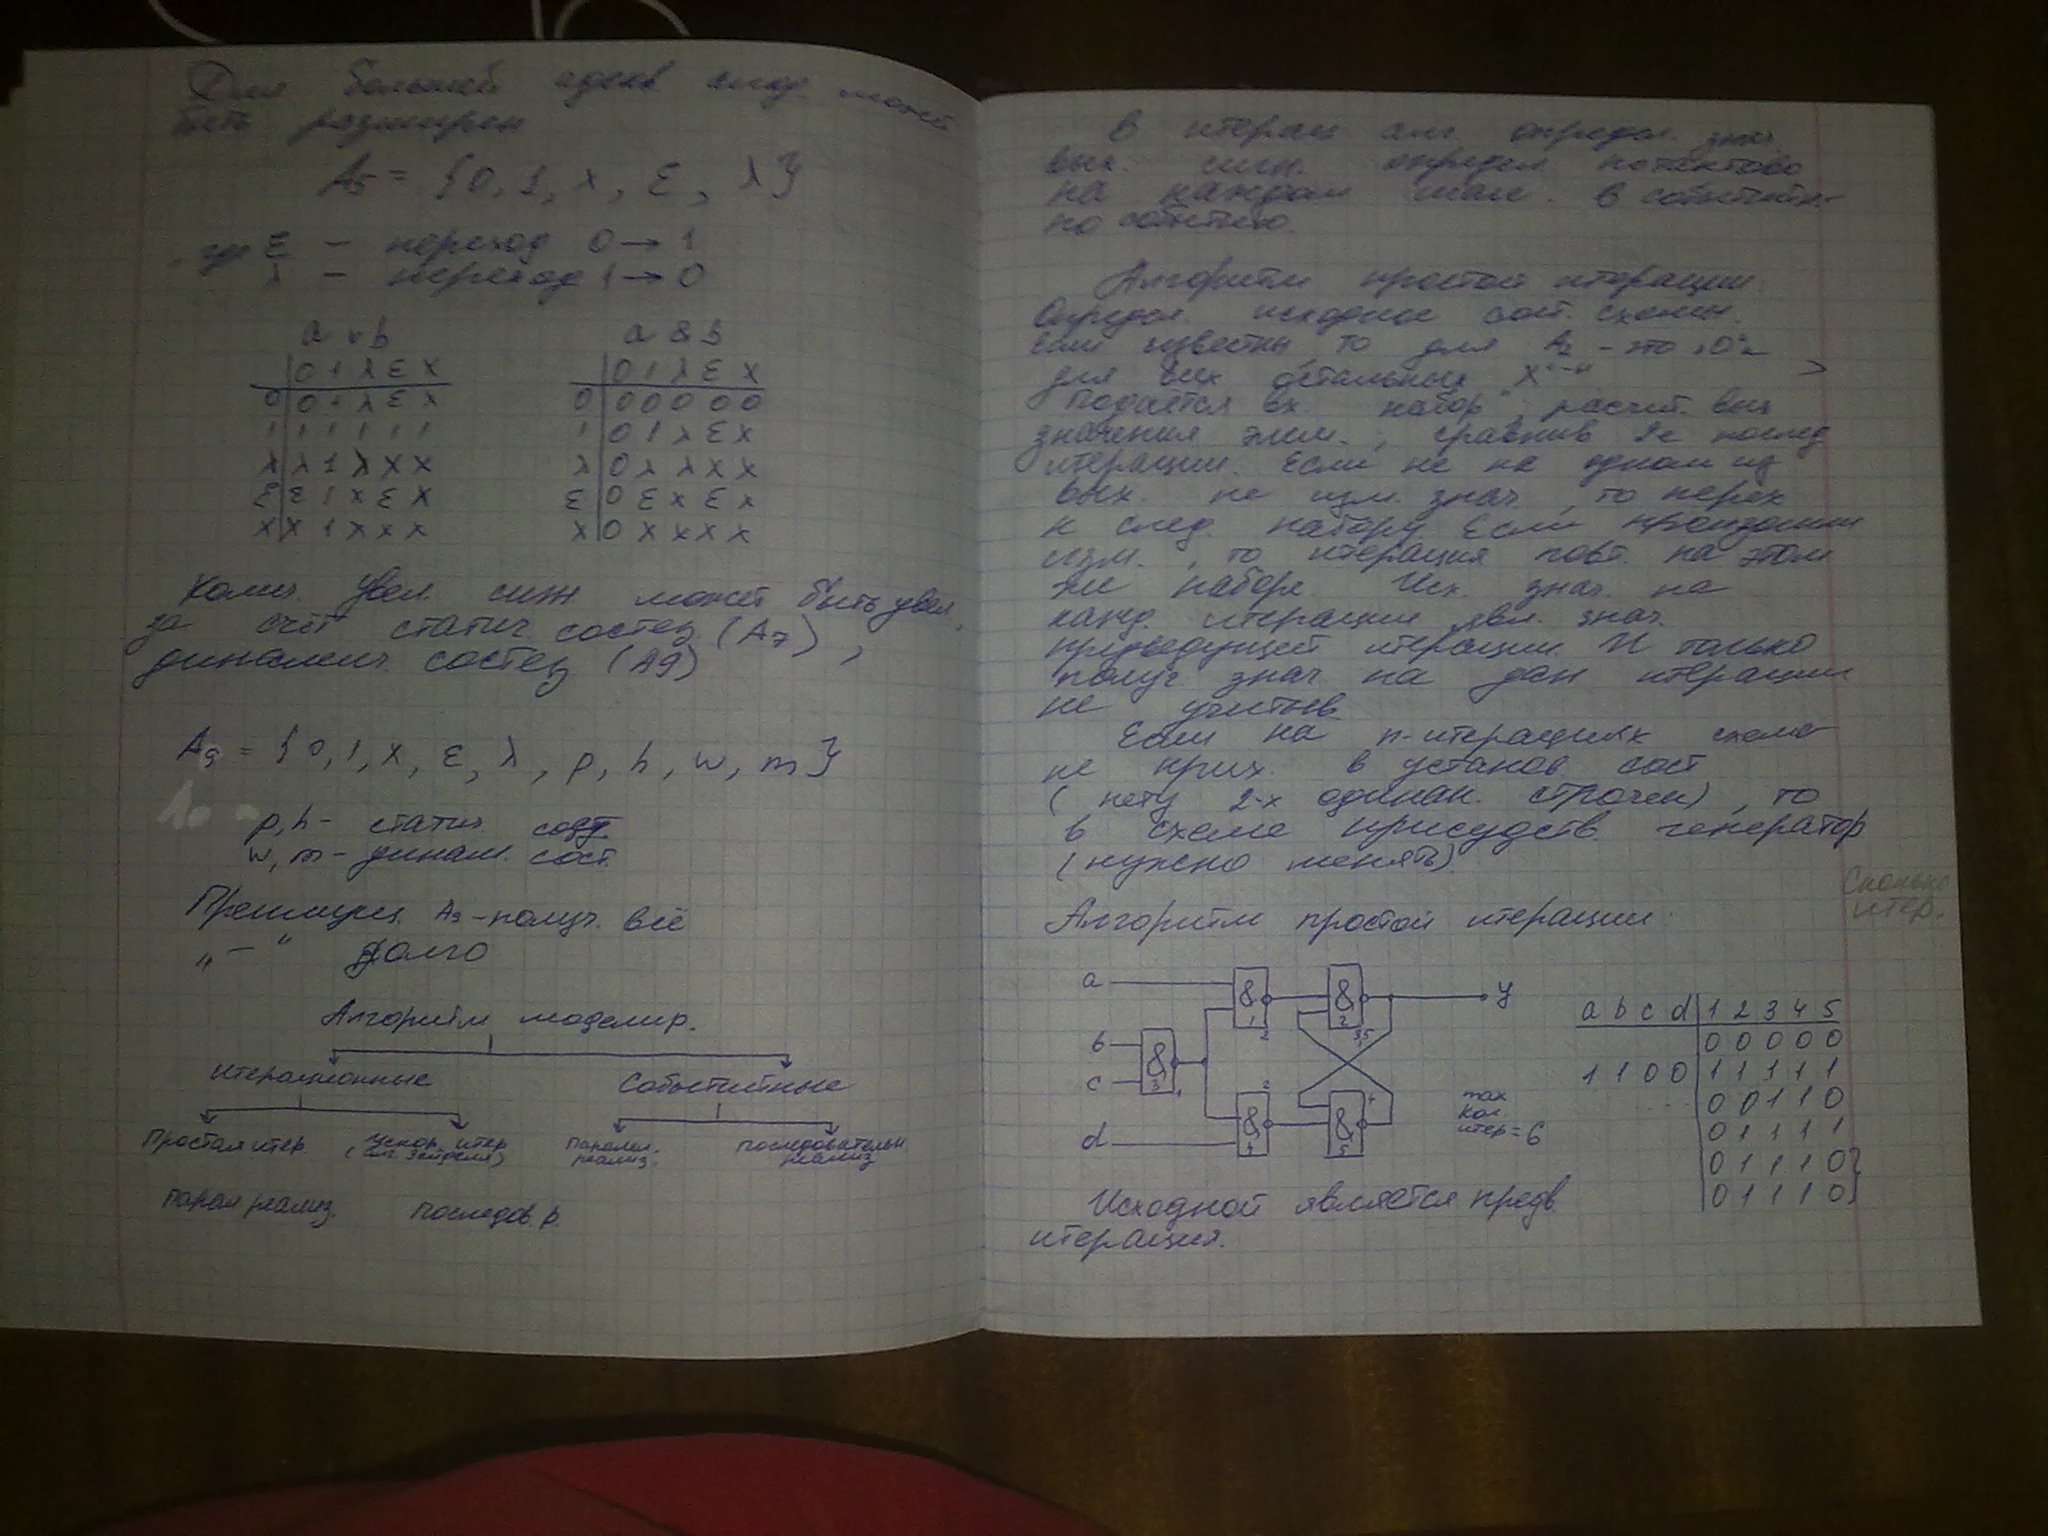 Для большей адекв след. может
быть розширен
A5 = {0, 1, x, ε, λ}
где ε - переход 0→1
λ - переход 1→0
a v b
0 1 λ ε x
0 0 1 λ ε x
1 1 1 1 1 1
λ λ 1 λ x x
ε ε 1 x ε x
x x 1 x x x
a & b
0 1 λ ε x
0 0 0 0 0 0
1 0 1 λ ε x
λ 0 λ λ x x
ε 0 ε x ε x
x 0 x x x x
Колич. увел. сим. может быть увел.
за счёт статич. состяз (A7),
динамич. состяз (A9)
A9 = {0, 1, x, ε, λ, p, h, w, m}
p, h - статич.
w, m - динам. сост.
Преимущ. A9 - получ. всё
„ — “ долго
Алгоритм моделир.
Итерационные Событийные
Простая итер. (Ускор. итер
алг. Зейделя) Паралел.
реализ. последовательн.
реализ
парал реализ. последов. р.
В итерац алг определ. знач.
вых. сигн. определ. потактово
на каждом шаге. В событийн.-
по событию.
Алгоритм простой итерации
Определ. исходное сост. схемы.
Если известны, то для A2 - это „0“
для всех остальных „X“
Подается вх. набор, расчит. вых
значения элем., сравнив с послед
итерации. Если не на одном из
вых. не изм. знач, то перех
к след. набору. Если произошли
изм., то итерация повт. на этом
же наборе. Исх. знач. на
кажд. итерации явл. знач.
предыдущей итерации. И только
получ. знач на дан итерации
не учитыв.
Если на n-итерациях схема
не прих. в установ. сост
(нету 2-х одинак. строчек), то
в схеме присудств. генератор
(нужно менять).
Сколько
итер.
Алгоритм простой итерации.
a & 1 2 & 2 3,5 y
b c & 3 1
d & 4 2 & 5 4
max
кол
итер = 6
a b c d 1 2 3 4 5
0 0 0 0 0
1 1 0 0 1 1 1 1 1
0 0 1 1 0
0 1 1 1 1
0 1 1 1 0
0 1 1 1 0
Исходной является предв.
итерация.